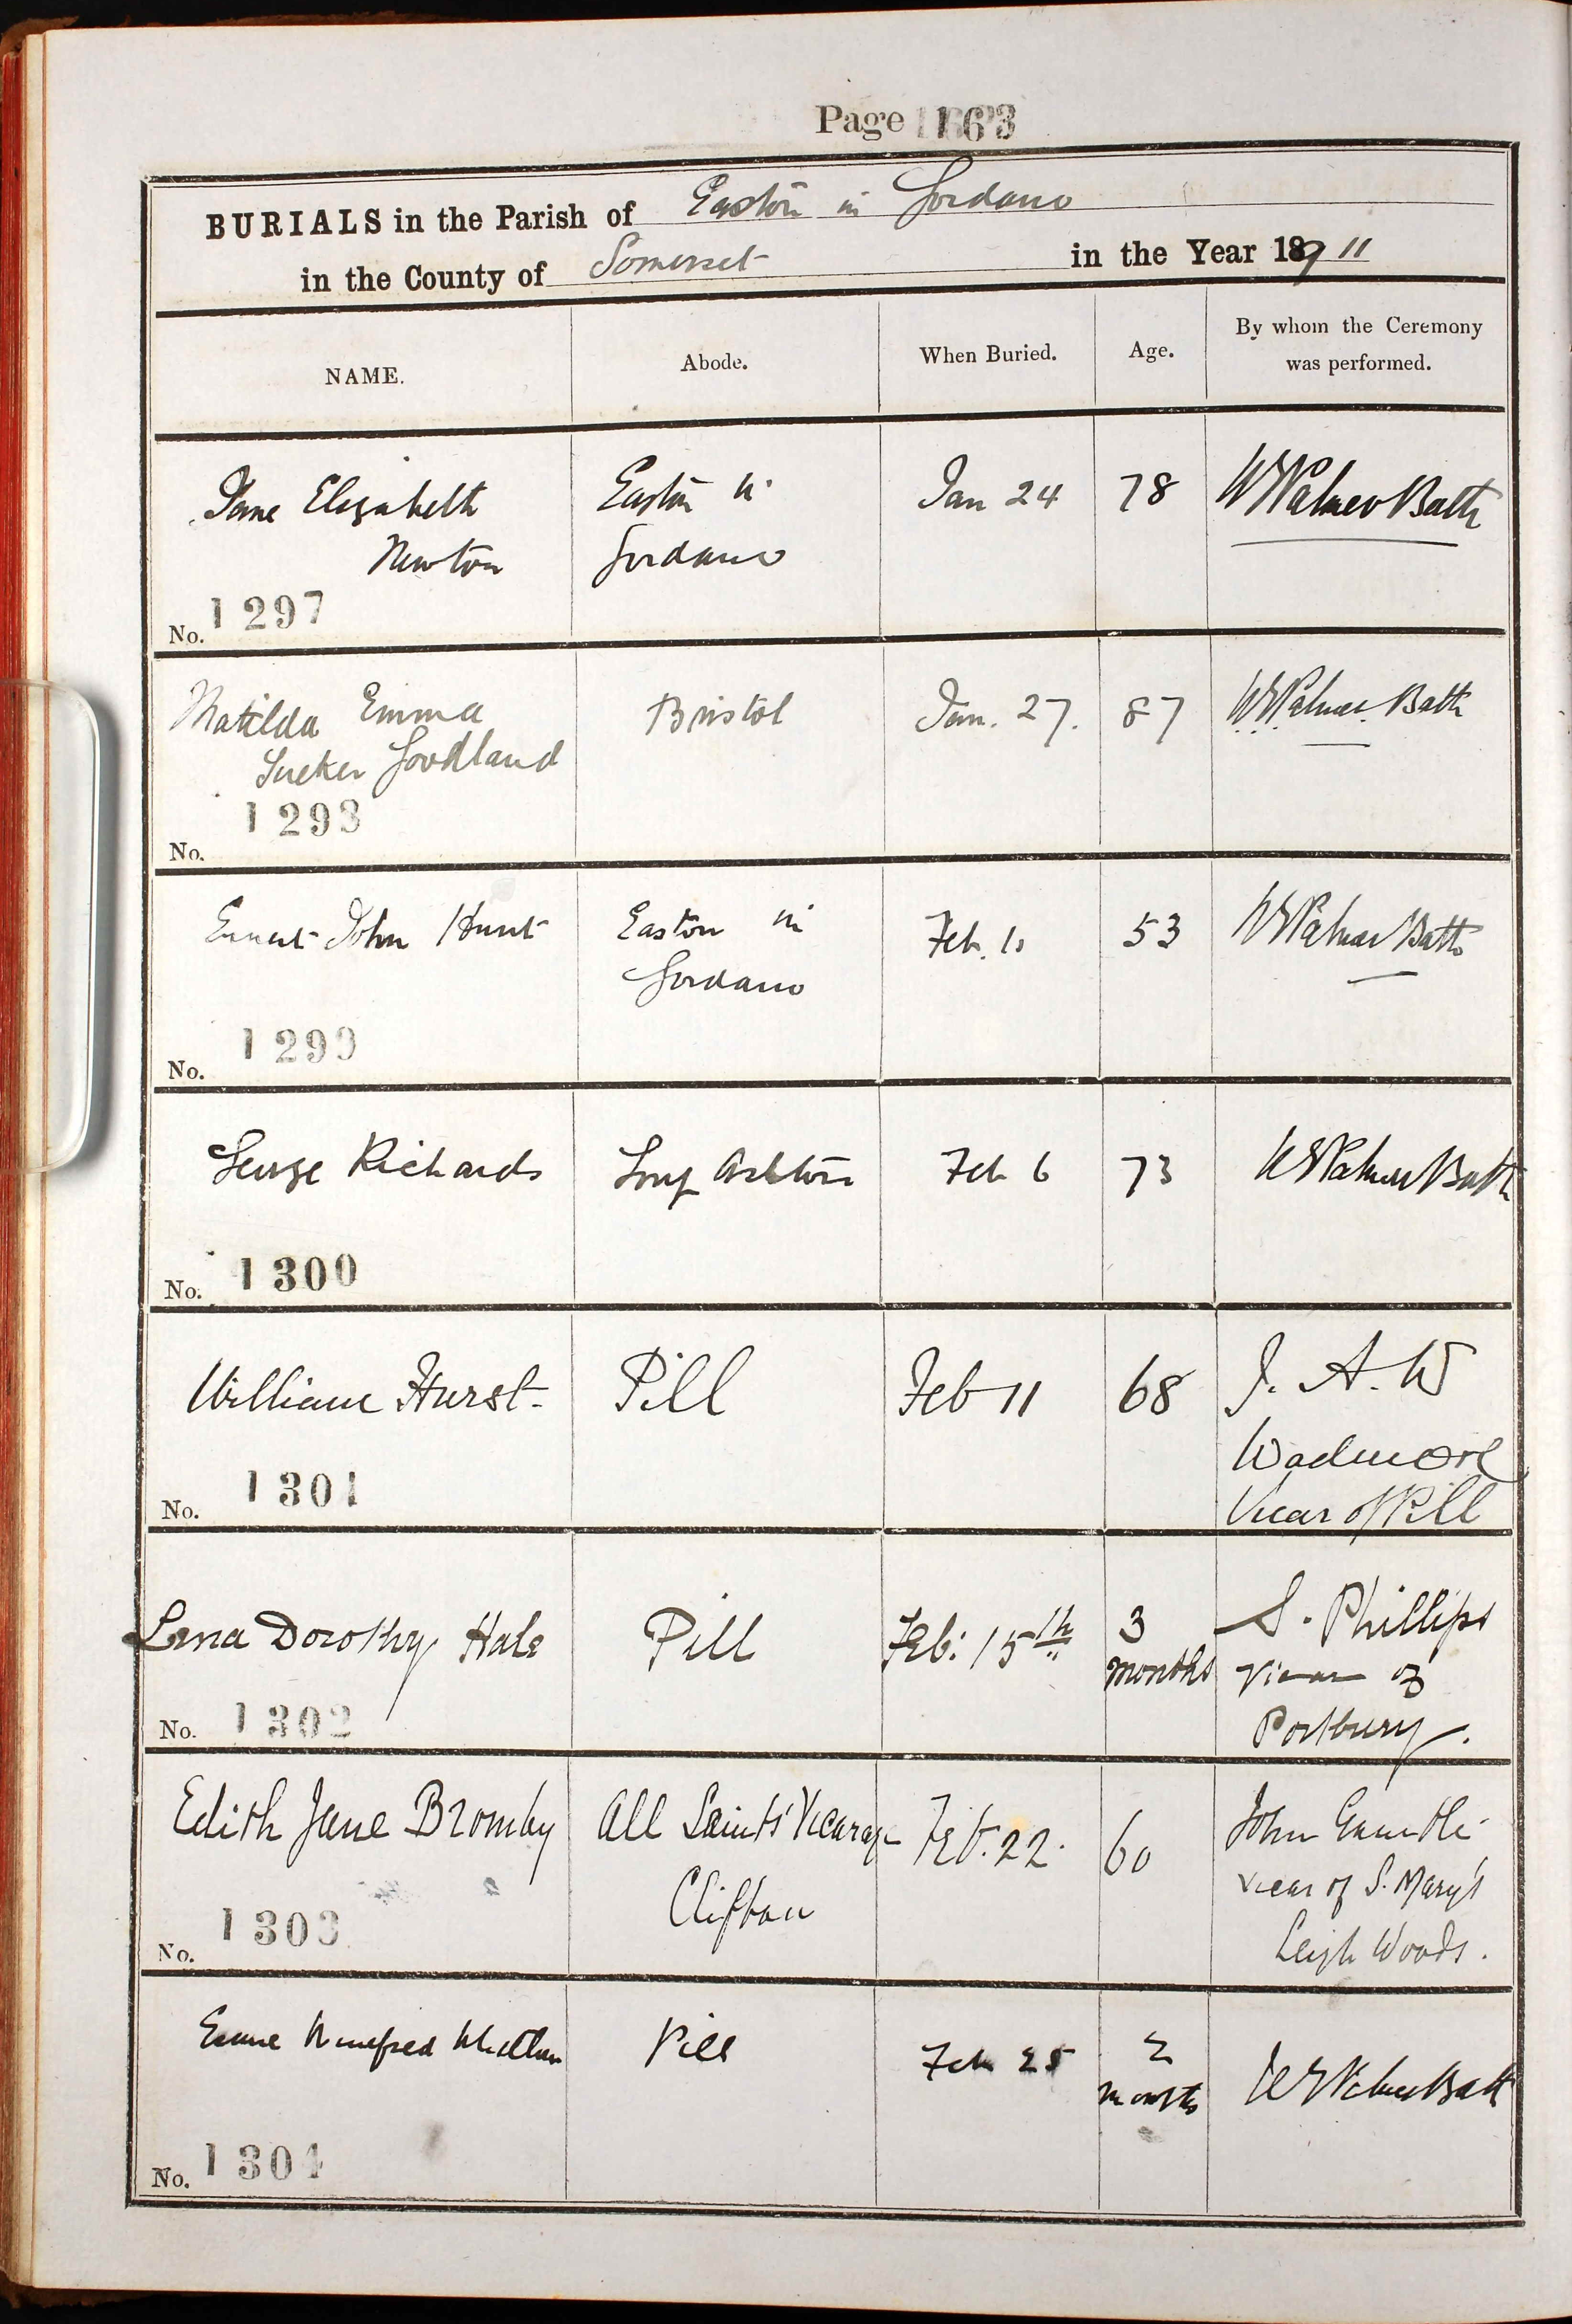 Page 163
BURIALS in the Parish of Easton in Gordano
in the County of Somerset in the Year 1911
NAME. Abode. When Buried. Age. By whom the Ceremony
was performed.
Jane Elizabeth Easton in Jan 24 78 W Palmer Batts
Newton Gordano
No. 1297
Matilda Emma Bristol Jan. 27. 87 W Palmer Batts
Goodland
No. 1298
Ernest John Hunt Easton in Feb. 53 W Palmer Batts
Gordano
No. 1299
George Richards Long Ashton Feb 6 73 W Palmer Batts
No. 1300
William Hurst Pill Feb 11 68 J. A. W
Wadmore
Vicar of Pill
No. 1301
Lena Dorothy Hale Pill Feb: 15th 3 months S. Phillips
Vicar of
Portbury.
No. 1302
Edith Jane Bromby All Saints' Vicarage Feb. 22. 60 John
Clifton Vicar of S. Mary's
Leigh Woods.
No. 1303
Winefred Pill Feb 25 2 months W Palmer Batts
No. 1304